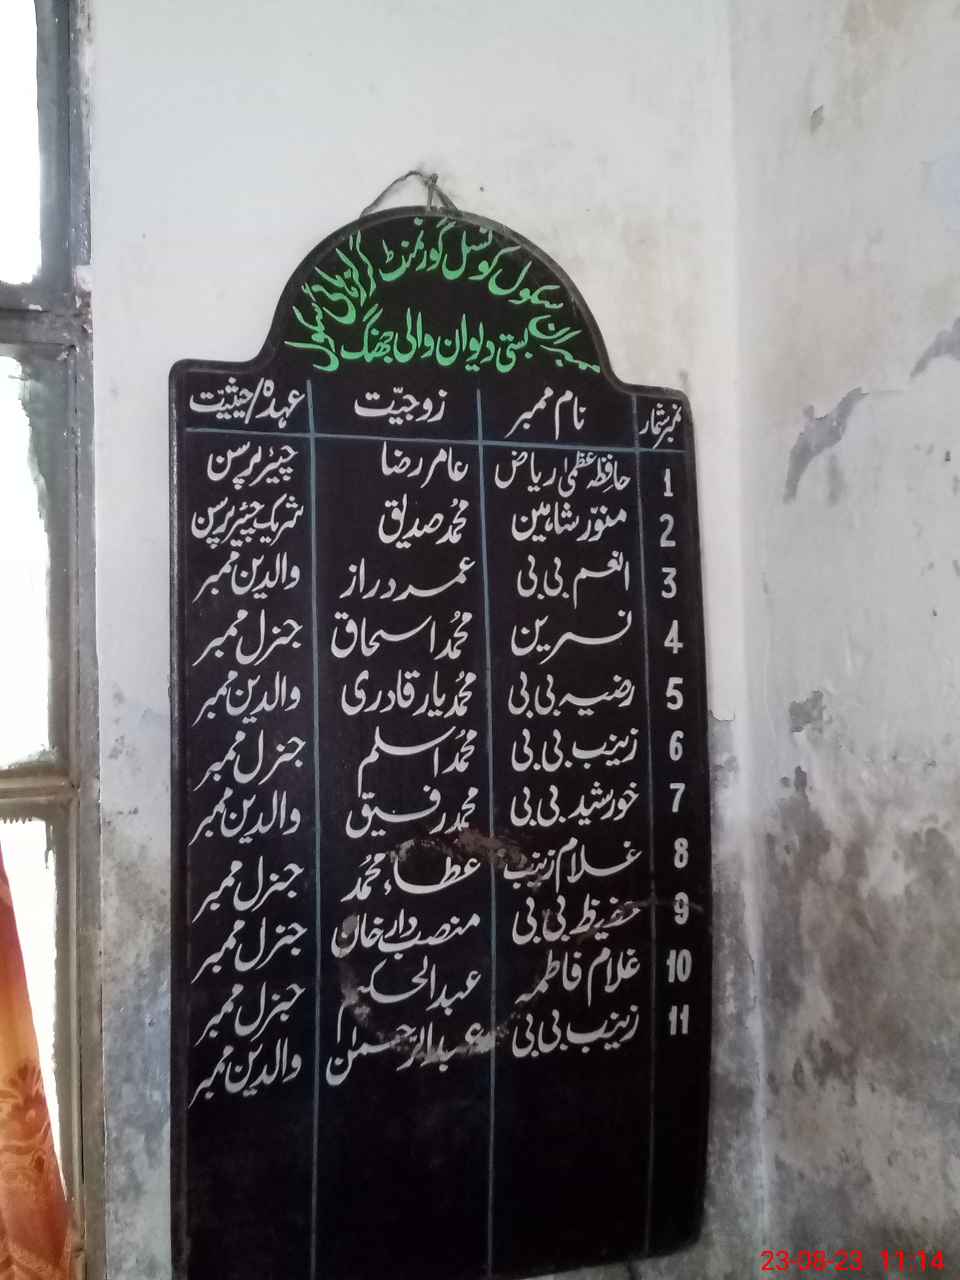 ممبران سکول کونسل گورنمنٹ گرلز ہائی سکول
بستی دیوان والی جھنگ
نمبر شمار نام ممبر زوجیّت عہدہ/حیثیّت
1 حافظہ عظمیٰ ریاض عامر رضا چیئر پرسن
2 منوّر شاہین محمد صدیق شریک چیئر پرسن
3 انعم بی بی عمر دراز والدین ممبر
4 نسرین محمد اسحاق جنرل ممبر
5 رضیہ بی بی محمد یار قادری والدین ممبر
6 زینب بی بی محمد اسلم جنرل ممبر
7 خورشید بی بی محمد رفیق والدین ممبر
8 غلام زینب عطاء محمد جنرل ممبر
9 حفیظ بی بی منصب دار خان جنرل ممبر
10 غلام فاطمہ عبدالحکیم جنرل ممبر
11 زینب بی بی عبدالرحمٰن والدین ممبر
23-08-23 11:14